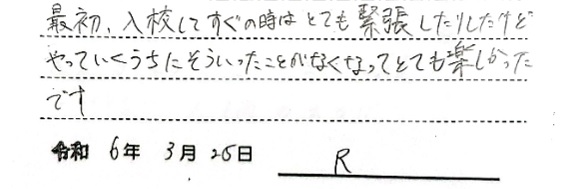 最初、入校してすぐの時はとても緊張したりしたけど
やっていくうちにそういったことがなくなってとても楽しかった
です
令和 6年 3月 26日 R